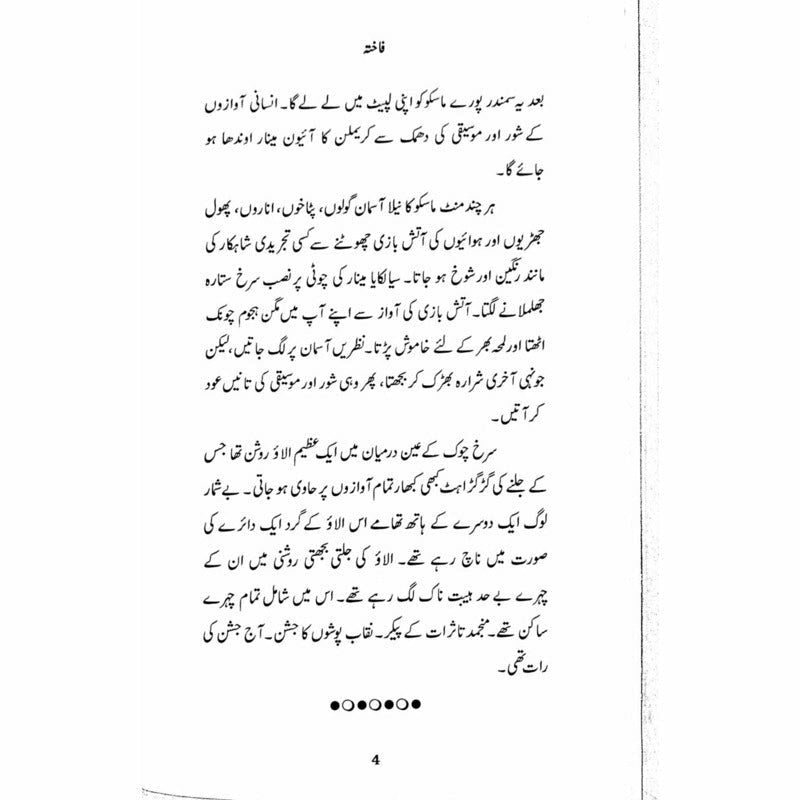 فاختہ
بعد یہ سمندر پورے ماسکو کو اپنی لپیٹ میں لے لے گا۔ انسانی آوازوں
کے شور اور موسیقی کی دھمک سے کریملن کا آئیون مینار اوندھا ہو
جائے گا۔
ہر چند منٹ ماسکو کا نیلا آسمان گولوں، پٹاخوں، اناروں، پھول
جھڑیوں اور ہوائیوں کی آتش بازی چھوٹنے سے کسی تجریدی شاہکار کی
مانند رنگین اور شوخ ہو جاتا۔ سپالکایا مینار کی چوٹی پر نصب سرخ ستارہ
جھلملانے لگتا۔ آتش بازی کی آواز سے اپنے آپ میں مگن ہجوم چونک
اٹھتا اور لمحہ بھر کے لئے خاموش پڑتا۔ نظریں آسمان پر لگ جاتیں، لیکن
جونہی آخری شرارہ بھڑک کر بجھتا، پھر وہی شور اور موسیقی کی تانیں عود
کر آتیں۔
سرخ چوک کے عین درمیان میں ایک عظیم الاؤ روشن تھا جس
کے جلنے کی گڑگڑاہٹ کبھی کبھار تمام آوازوں پر حاوی ہو جاتی۔ بے شمار
لوگ ایک دوسرے کے ہاتھ تھامے اس الاؤ کے گرد ایک دائرے کی
صورت میں ناچ رہے تھے۔ الاؤ کی جلتی بجھتی روشنی میں ان کے
چہرے بے حد ہیبت ناک لگ رہے تھے۔ اس میں شامل تمام چہرے
ساکن تھے۔ منجمد تاثرات کے پیکر۔ نقاب پوشوں کا جشن۔ آج جشن کی
رات تھی۔
4